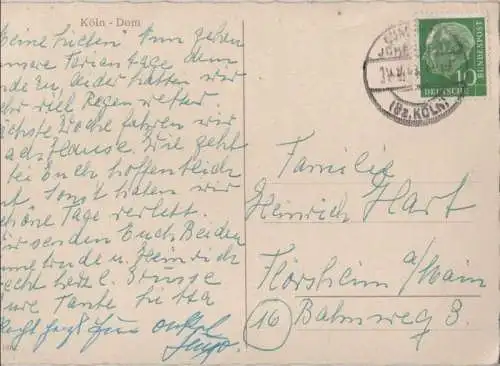 Köln - Dom
Meine Lieben! Nun gehen
unsere Ferientage dem
Ende zu, leider hatten wir
sehr viel Regenwetter.
Nächste Woche fahren wir
nach Hause. Wie geht
bei Euch hoffentlich
gut. Sonst haben wir
schöne Tage verlebt.
Wir senden Euch Beiden
u. Heinrich
recht herzl. Grüsse
Eure Tante
Onkel
DEUTSCHE
BUNDESPOST
10
(Bz. KÖLN)
Familie
Heinrich Hart
Flörsheim a/Main
16 Bahnweg 3.